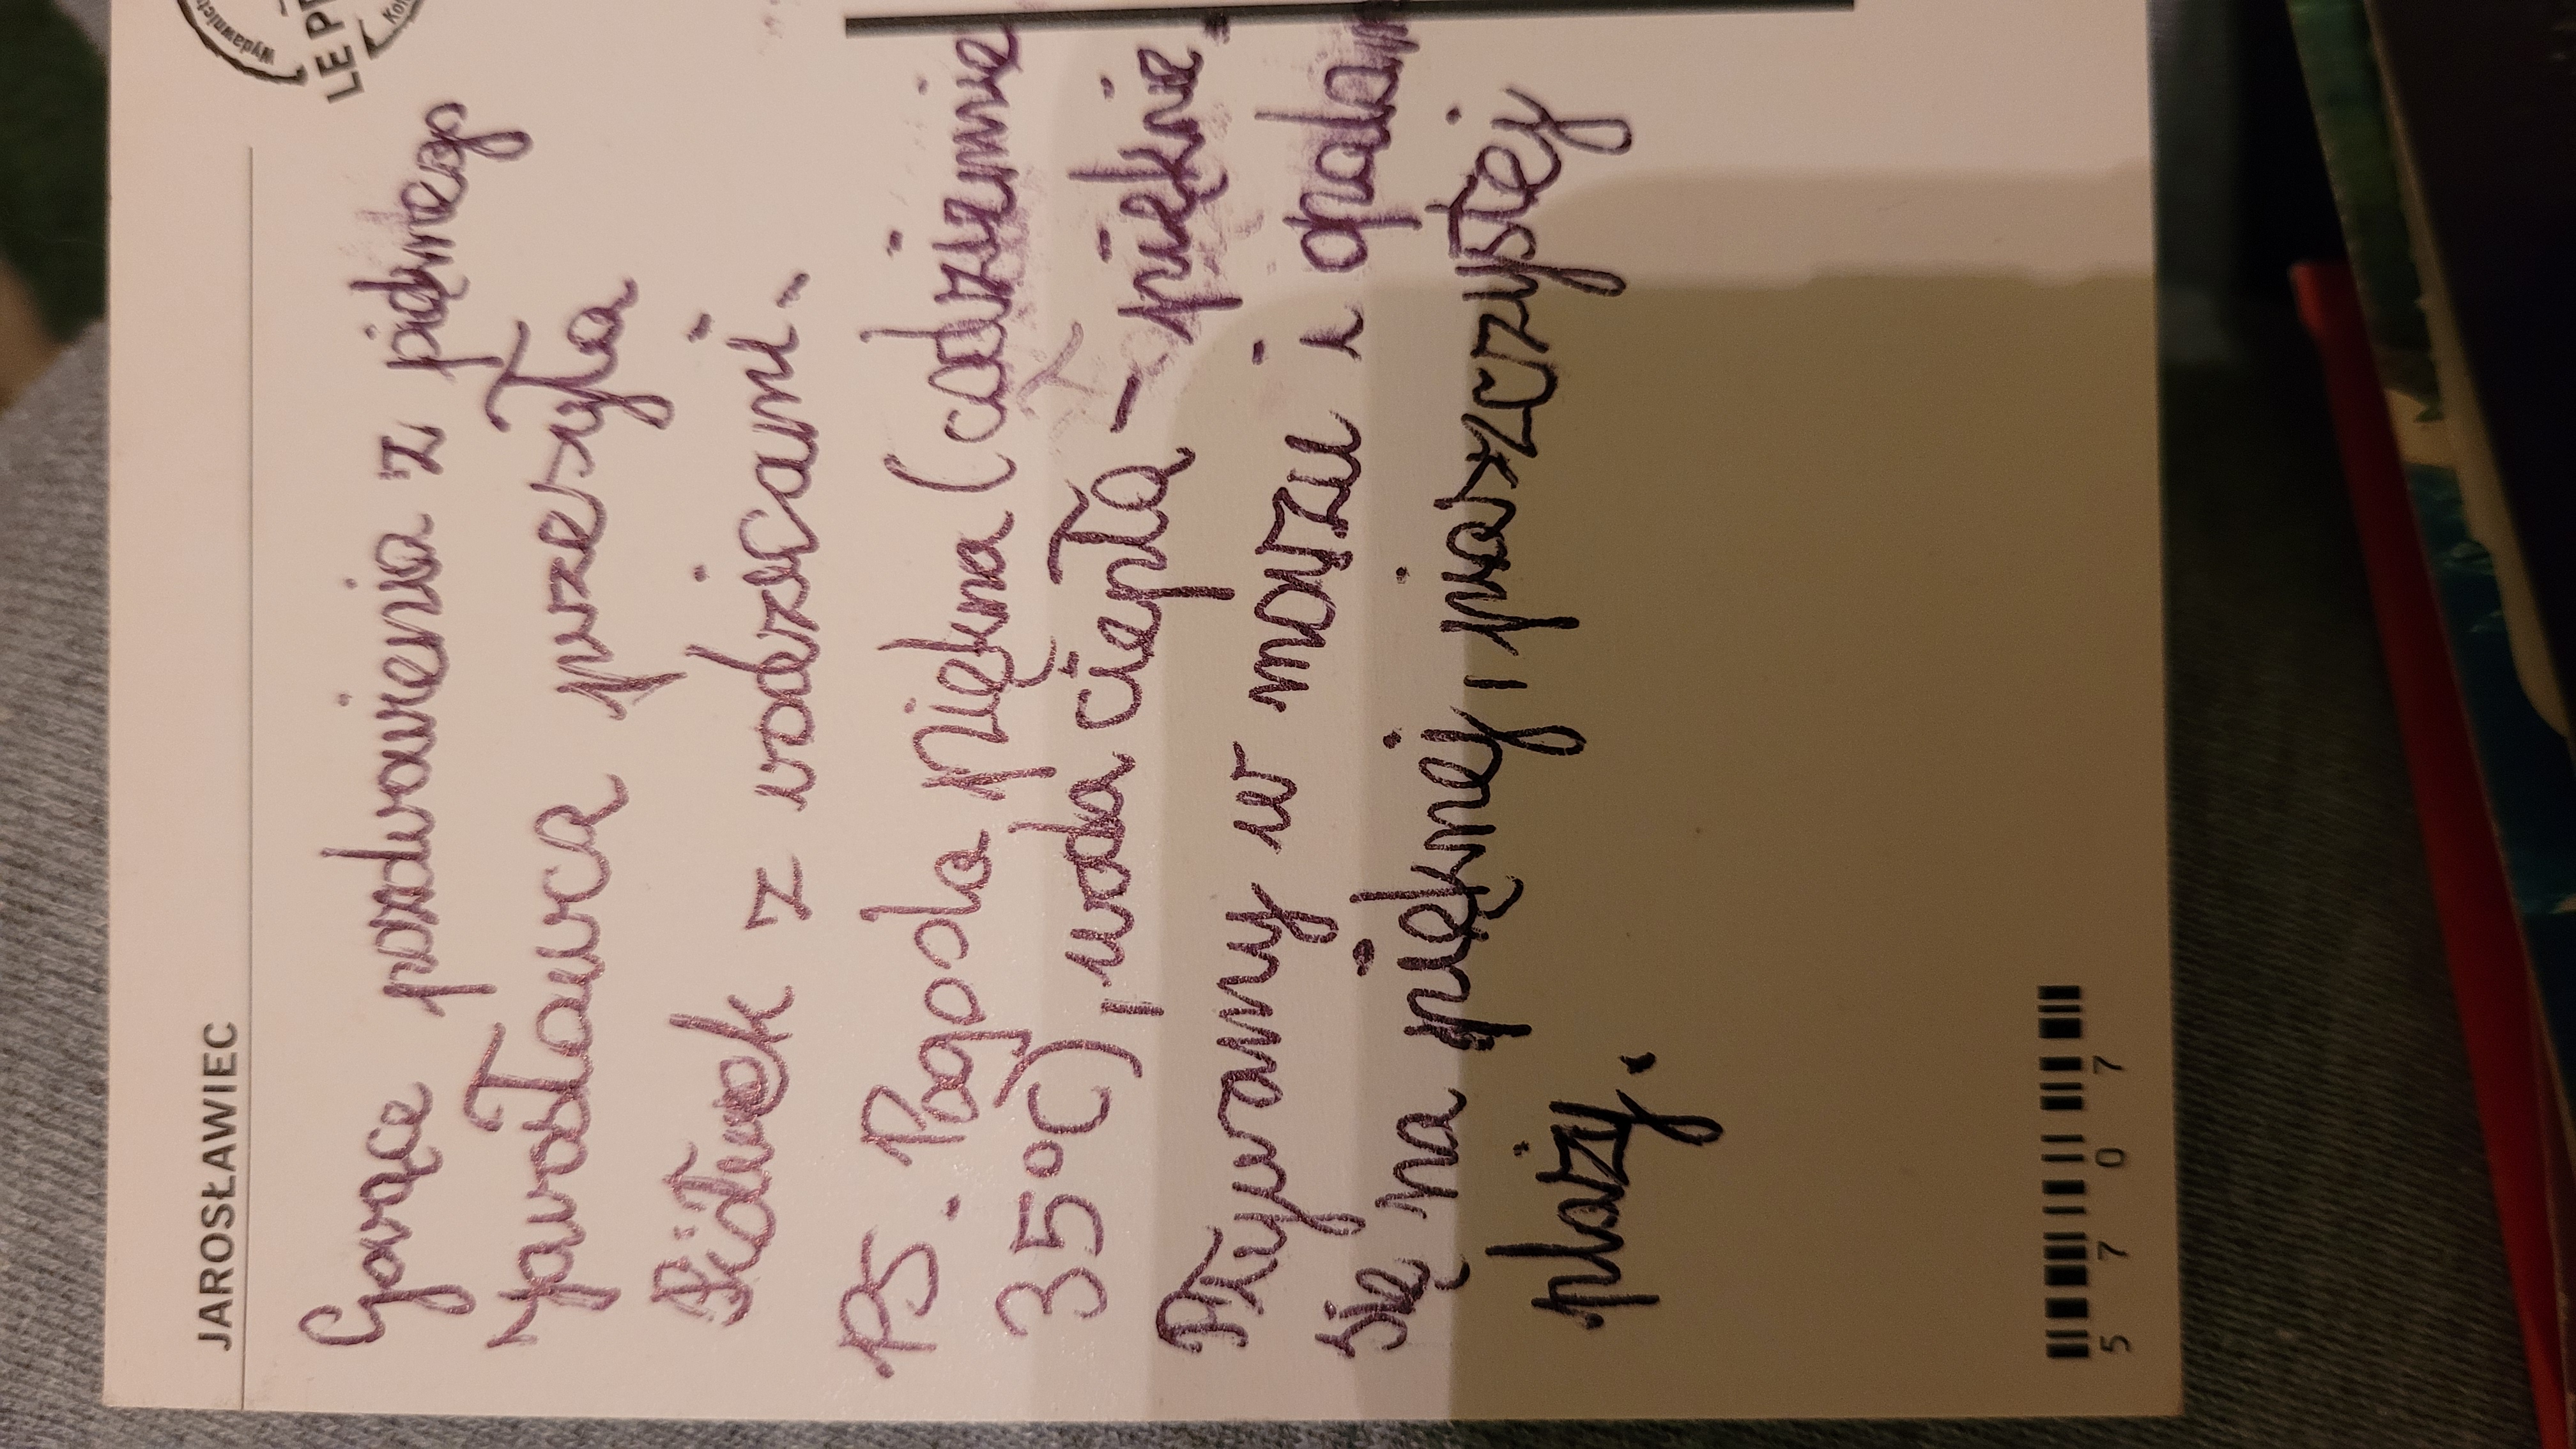 JAROSŁAWIEC
Wydawnic
LE P
Gorące pozdrowienia z pięknego
Jarosławca przesyła
z rodzicami.
PS. Pogoda piękna (codziennie
35°C), woda ciepła - pięknie.
Pływamy w morzu i opalam
się na pięknej, piaszczystej
plaży.
5 7 0 7